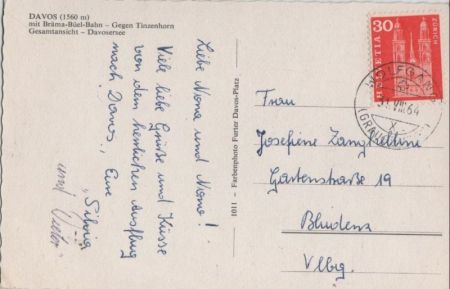 DAVOS (1560 m)
mit Bräma-Büel-Bahn – Gegen Tinzenhorn
Gesamtansicht – Davosersee
Liebe Nona und Nono!
Viele liebe Grüße und Küsse
von dem herrlichen Ausflug
nach Davos, Eure
Silvia
und
1011 – Farbenphoto Furter Davos-Platz
30
HELVETIA
ZÜRICH
WOLFGANG
VIII.64
(GRAUB
Frau
Josefine Zangtellini
Gartenstraße 19
Bludenz
Vlbg.